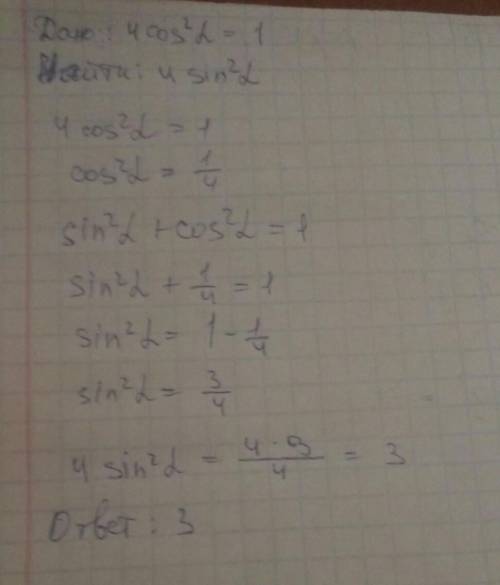 Дано: 4 cos²α = 1
Найти: 4 sin²α
4 cos²α = 1
cos²α = 1/4
sin²α + cos²α = 1
sin²α + 1/4 = 1
sin²α = 1 - 1/4
sin²α = 3/4
4 sin²α = 4 · 3/4 = 3
Ответ: 3